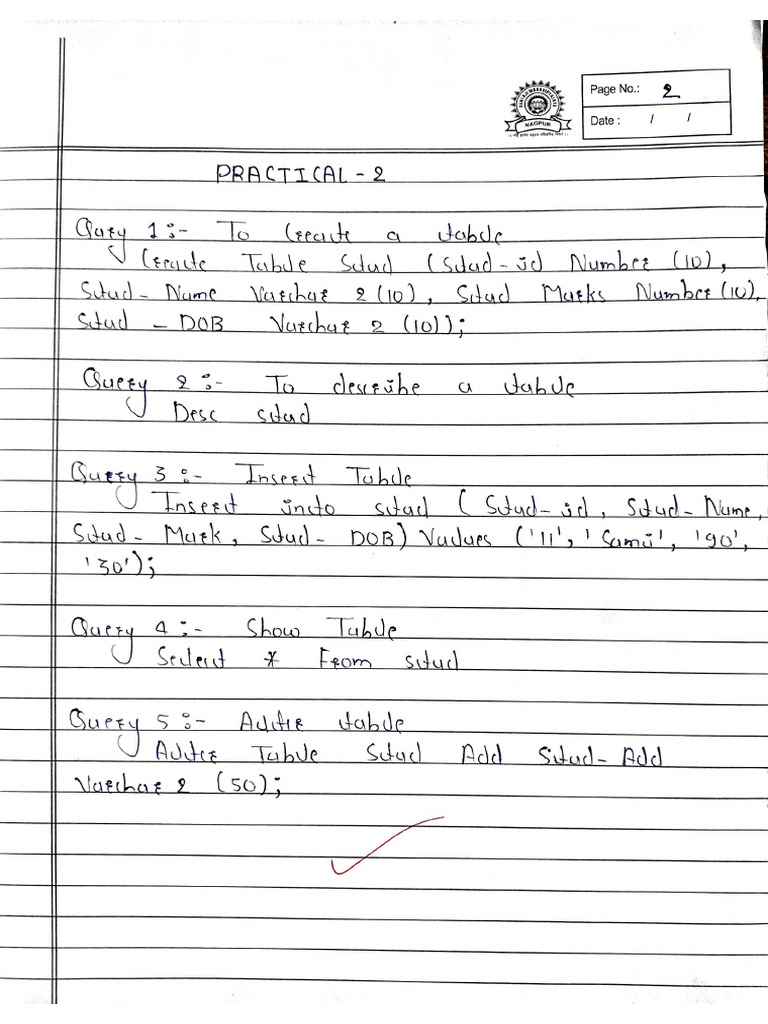 NAGPUR
Page No.: 2
Date : / /
PRACTICAL - 2
Query 1 :- To Create a table
Create Table Stud (Stud-id Number (10),
Stud-Name Varchar 2 (10), Stud Marks Number (10),
Stud - DOB Varchar 2 (10));
Query 2 :- To describe a table
Desc stud
Query 3 :- Insert Table
Insert into stud ( Stud-id, Stud-Name,
Stud-Mark, Stud-DOB) Values ('11', 'Sami', '90',
'30');
Query 4 :- Show Table
Select * From stud
Query 5 :- Alter table
Alter Table Stud Add Stud-Add
Varchar 2 (50);